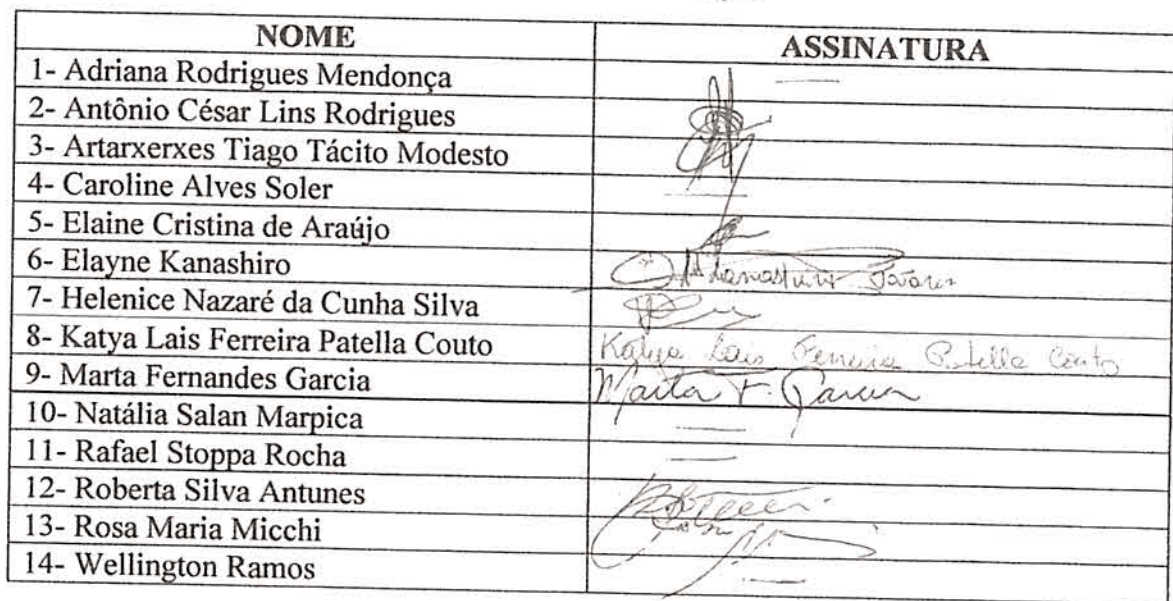 NOME ASSINATURA
1- Adriana Rodrigues Mendonça
2- Antônio César Lins Rodrigues
3- Artarxerxes Tiago Tácito Modesto
4- Caroline Alves Soler
5- Elaine Cristina de Araújo
6- Elayne Kanashiro
7- Helenice Nazaré da Cunha Silva
8- Katya Lais Ferreira Patella Couto Katya Lais Ferreira Patella Couto
9- Marta Fernandes Garcia Marta F. Garcia
10- Natália Salan Marpica
11- Rafael Stoppa Rocha
12- Roberta Silva Antunes
13- Rosa Maria Micchi
14- Wellington Ramos